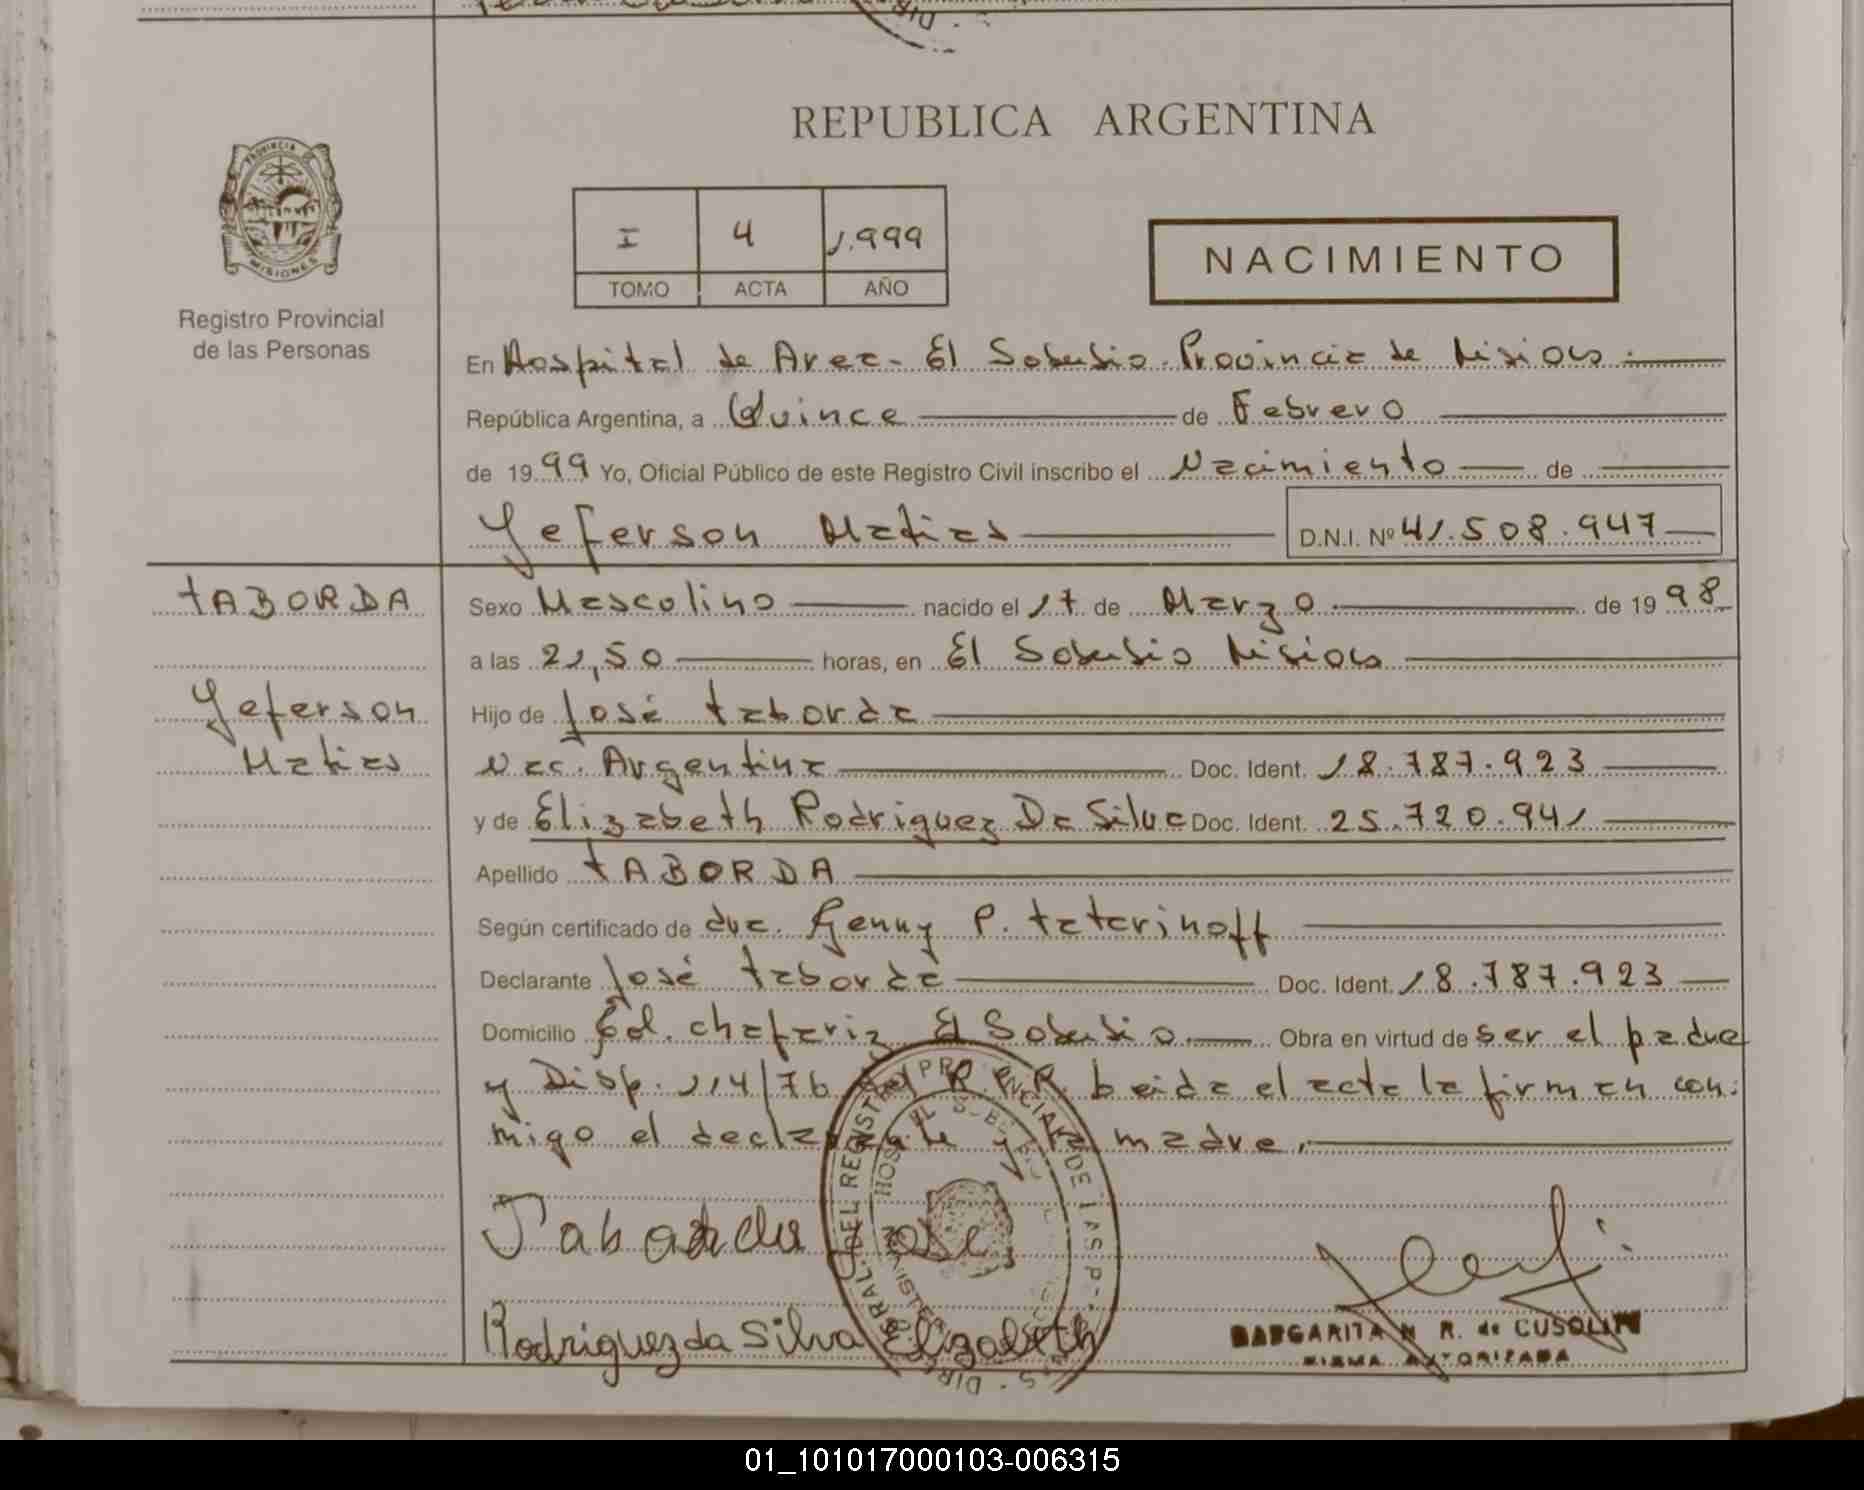 REPUBLICA ARGENTINA
PROVINCIA DE
MISIONES
Registro Provincial
de las Personas
I 4 1.999
TOMO ACTA AÑO
NACIMIENTO
En Hospital de Area - El Soberbio - Provincia de Misiones.
República Argentina, a Quince de Febrero
de 1999 Yo, Oficial Público de este Registro Civil inscribo el Nacimiento de
Yeferson Matias D.N.I. Nº 41.508.947
TABORDA
Yeferson
Matias
Sexo Masculino nacido el 17 de Marzo de 1998
a las 21,50 horas, en El Soberbio Misiones
Hijo de José Taborda
Nac. Argentina Doc. Ident. 18.787.923
y de Elizabeth Rodriguez Da Silva Doc. Ident. 25.720.941
Apellido TABORDA
Según certificado de dra. Genny P. Tatarinoff
Declarante José Taborda Doc. Ident. 18.787.923
Domicilio Col. chafariz El Soberbio Obra en virtud de ser el padre
y Disp. 114/76 del R.P.P. leida el acta la firman con-
migo el declarante y la madre.
Taborda Jose
Rodriguez da Silva Elizabeth
MARGARITA N R. de CUSOLITO
FIRMA AUTORIZADA
01_101017000103-006315